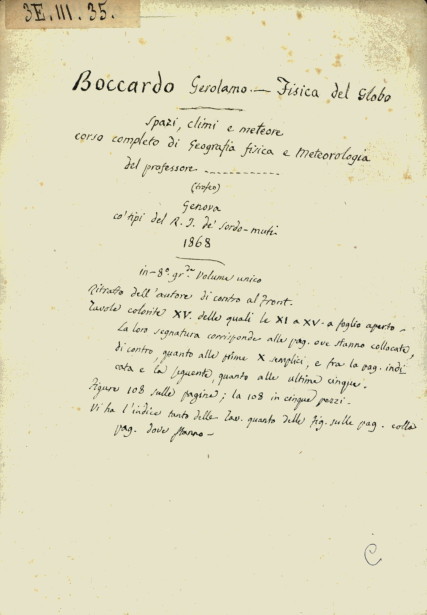 3E. III. 35.
Boccardo Gerolamo. — Fisica del Globo
Spazi, climi e meteore
corso completo di Geografia fisica e Meteorologia
del professore ------------
(trofeo)
Genova
co' tipi del R. I. de' sordo-muti
1868
in-8º. gr.de Volume unico
Ritratto dell'autore di contro al front.
Tavole colorite XV. delle quali le XI a XV. a foglio aperto.
La loro segnatura corrisponde alle pag. ove stanno collocate,
di contro, quanto alle prime X semplici, e fra la pag. indi
cata e la seguente, quanto alle ultime cinque.
Figure 108 sulle pagine; la 108 in cinque pezzi.
Vi ha l'indice tanto delle Tav. quanto delle fig. sulle pag. colla
pag. dove stanno —
C